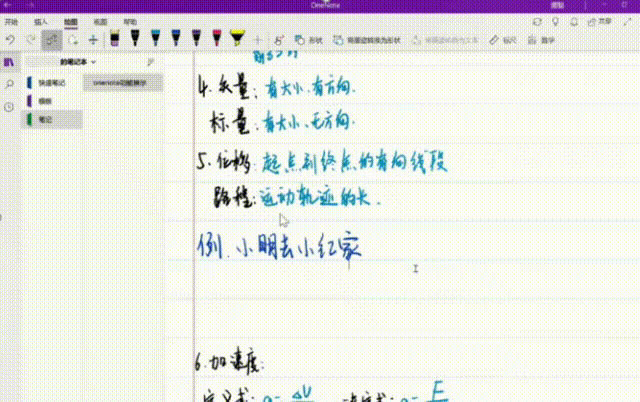 OneNote
开始 插入 绘图 视图 帮助
共享
形状 将墨迹转换为形状 将墨迹转换为文本 标尺 数学
的笔记本
快速笔记
模板
笔记
onenote功能展示
4. 矢量: 有大小.有方向.
标量: 有大小.无方向.
5. 位移: 起点到终点的有向线段
路程: 运动轨迹的长.
例. 小明去小红家
6. 加速度:
定义式: a= ΔV 决定式: a= F